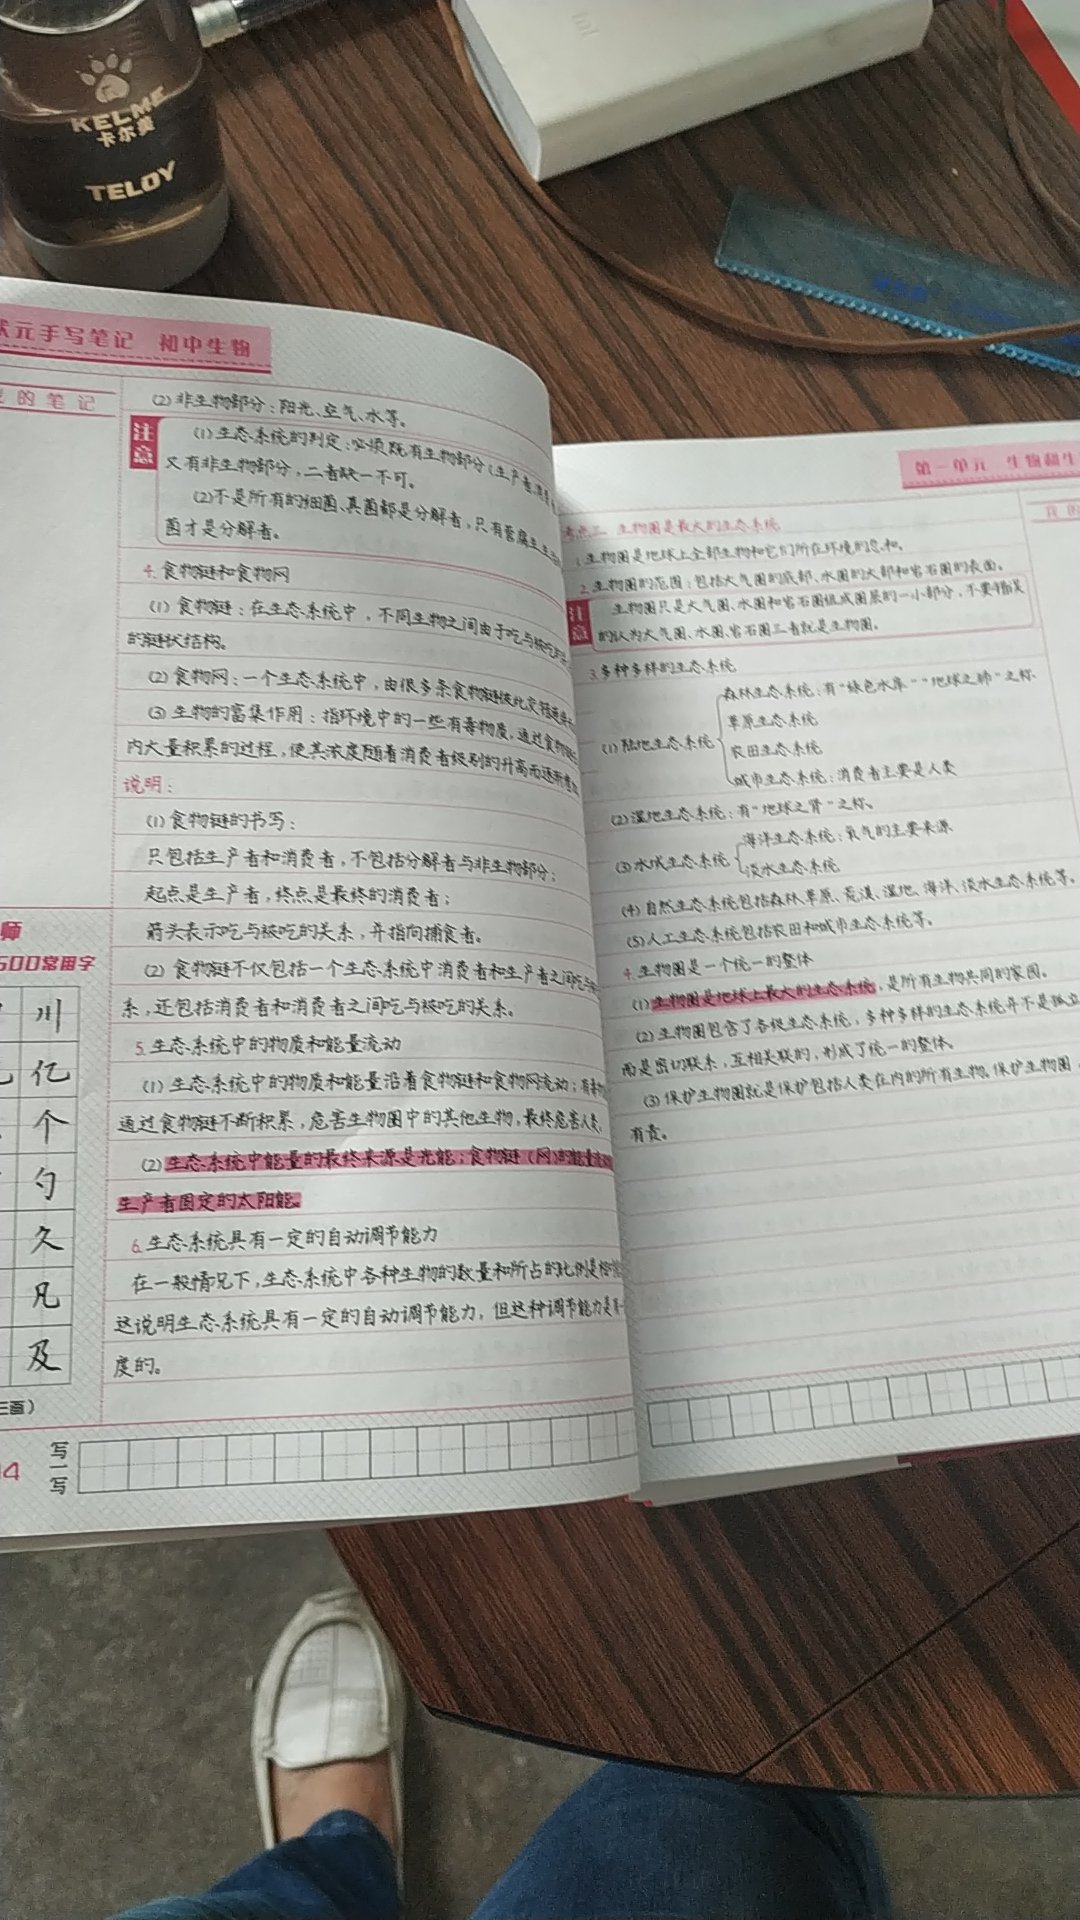 KELME
卡尔美
TELOY
状元手写笔记 初中生物
的笔记
(2)非生物部分:阳光、空气、水等。
注意
(1)生态系统的判定:必须既有生物部分(生产者、
又有非生物部分,二者缺一不可。
(2)不是所有的细菌、真菌都是分解者,只有营腐生生
菌才是分解者。
4.食物链和食物网
(1)食物链:在生态系统中,不同生物之间由于吃与被吃的
的链状结构。
(2)食物网:一个生态系统中,由很多条食物链彼此交错连接
(3)生物的富集作用:指环境中的一些有毒物质,通过食物链
内大量积累的过程,使其浓度随着消费者级别的升高而逐渐增加
说明:
(1)食物链的书写:
只包括生产者和消费者,不包括分解者与非生物部分;
起点是生产者,终点是最终的消费者;
箭头表示吃与被吃的关系,并指向捕食者。
(2)食物链不仅包括一个生态系统中消费者和生产者之间吃与
系,还包括消费者和消费者之间吃与被吃的关系。
5.生态系统中的物质和能量流动
(1)生态系统中的物质和能量沿着食物链和食物网流动;有毒
通过食物链不断积累,危害生物圈中的其他生物,最终危害人类。
(2)生态系统中能量的最终来源是光能;食物链(网)的能量
生产者固定的太阳能。
6.生态系统具有一定的自动调节能力
在一般情况下,生态系统中各种生物的数量和所占的比例是
这说明生态系统具有一定的自动调节能力,但这种调节能力是有
度的。
师
500常用字
川
亿
个
勺
久
凡
及
三画)
写一写
第一单元 生物和生
考点三 生物圈是最大的生态系统
1.生物圈是地球上全部生物和它们所在环境的总和。
2.生物圈的范围:包括大气圈的底部、水圈的大部和岩石圈的表面。
注意
生物圈只是大气圈、水圈和岩石圈组成圈层的一小部分,不要错误
的认为大气圈、水圈、岩石圈三者就是生物圈。
3.多种多样的生态系统
(1)陆地生态系统
森林生态系统:有“绿色水库”“地球之肺”之称
草原生态系统
农田生态系统
城市生态系统:消费者主要是人类
(2)湿地生态系统:有“地球之肾”之称。
(3)水域生态系统
海洋生态系统:氧气的主要来源
淡水生态系统
(4)自然生态系统包括森林、草原、荒漠、湿地、海洋、淡水生态系统等。
(5)人工生态系统包括农田和城市生态系统等。
4.生物圈是一个统一的整体
(1)生物圈是地球上最大的生态系统,是所有生物共同的家园。
(2)生物圈包含了各级生态系统,多种多样的生态系统并不是孤立
而是密切联系,互相关联的,形成了统一的整体。
(3)保护生物圈就是保护包括人类在内的所有生物。保护生物圈,
有责。